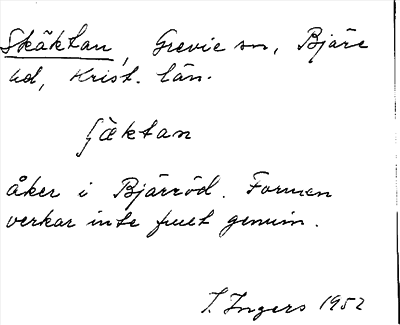 Skäktan, Grevie sn, Bjäre
hd, Krist. län.
ʃæktan
åker i Bjärröd. Formen
verkar inte fullt genuin.
I. Ingers 1952